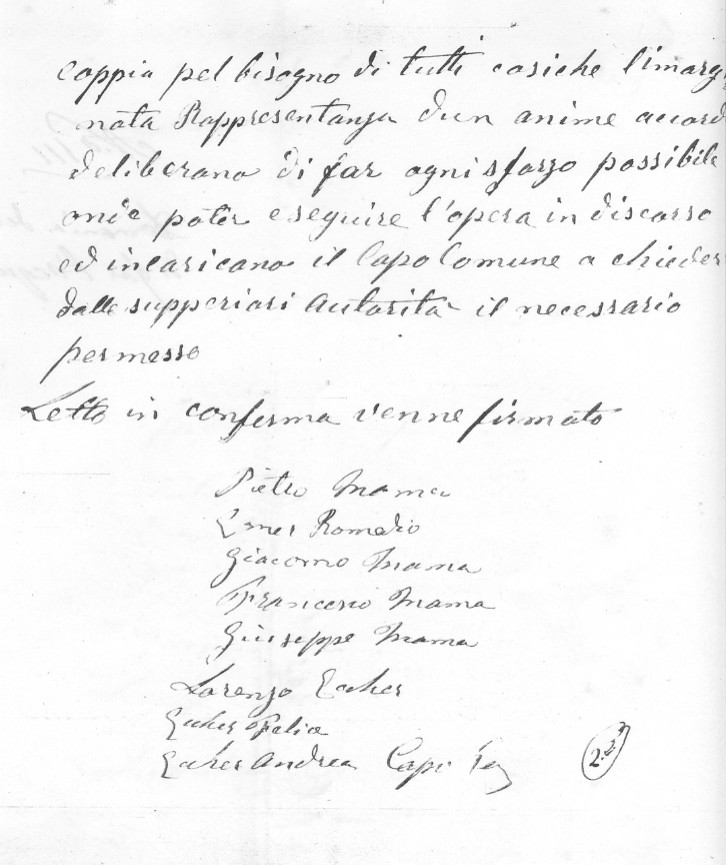 coppia pel bisogno di tutti cosiche l'imarg
nata Rappresentanza d'un anime accord
deliberano di far ogni sforzo possibile
onde poter eseguire l'opera in discorso
ed incaricano il Capo Comune a chieder
dalle supperiori Autorità il necessario
permesso
Letto in conferma venne firmato
Pietro Mama
Romedio
Giacomo Mama
Francesco Mama
Giuseppe Mama
Lorenzo Eccher
Eccher Felice
Eccher Andrea Capo
2